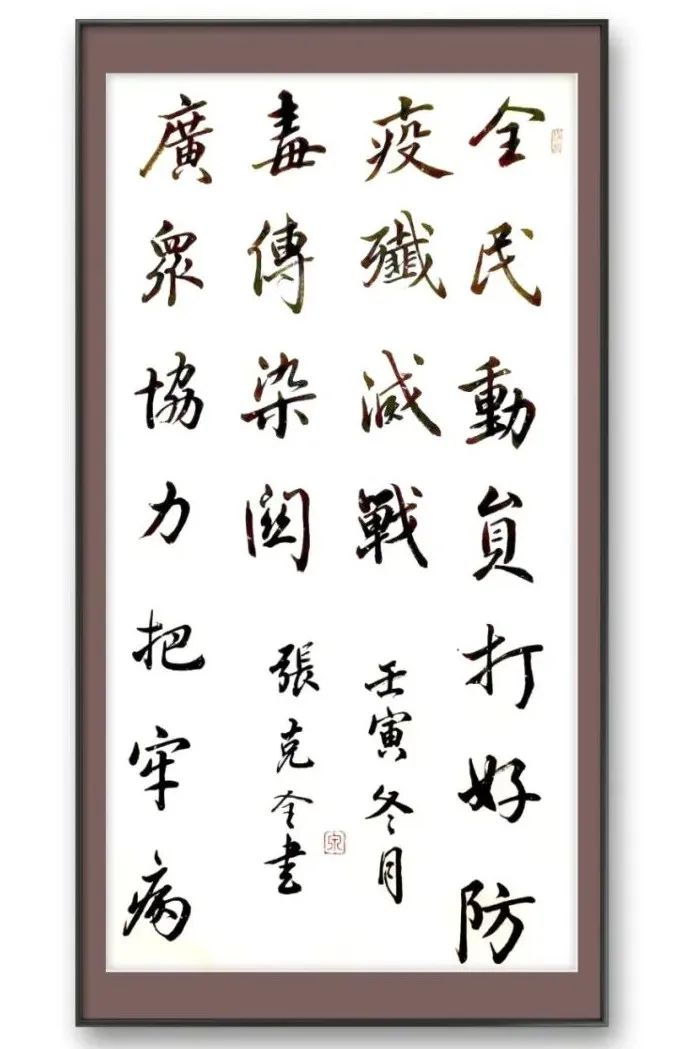 全民動員打好防
疫殲滅戰
廣眾協力把牢病
毒傳染關
壬寅冬月
張克全書